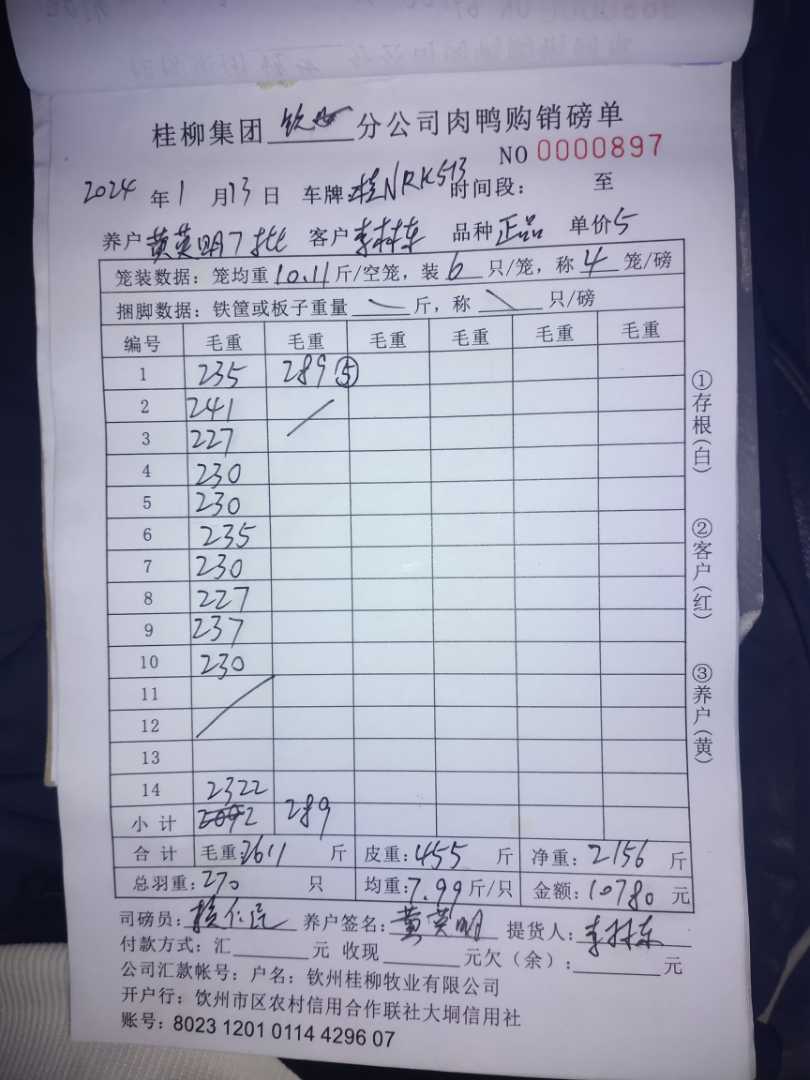 桂柳集团 钦州 分公司肉鸭购销磅单
NO 0000897
2024 年 1 月 13 日 车牌 桂NRK513 时间段： 至
养户 黄英明7批 客户 李林东 品种 正品 单价 5
笼装数据：笼均重 10.11 斤/空笼，装 6 只/笼，称 4 笼/磅
捆脚数据：铁筐或板子重量 斤，称 只/磅
编号 毛重 毛重 毛重 毛重 毛重 毛重
1 235 289 ⑤
2 241
3 227
4 230
5 230
6 235
7 230
8 227
9 237
10 230
11
12
13
14 2322
小计 289
合计 毛重：2611 斤 皮重：455 斤 净重：2156 斤
总羽重：270 只 均重：7.99 斤/只 金额：10780 元
司磅员： 养户签名：黄英明 提货人：李林东
付款方式：汇 元 收现 元欠（余）： 元
公司汇款帐号：户名：钦州桂柳牧业有限公司
开户行：饮州市区农村信用合作联社大垌信用社
账号：8023 1201 0114 4296 07
①存根（白）
②客户（红）
③养户（黄）